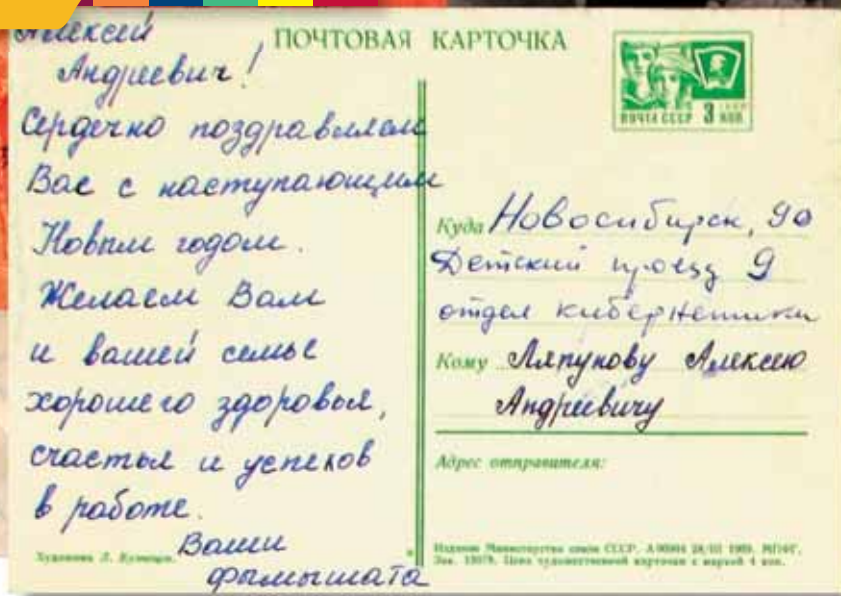 Алексей
Андреевич!
Сердечно поздравляем
Вас с наступающим
Новым годом.
Желаем Вам
и вашей семье
хорошего здоровья,
счастья и успехов
в работе.
Ваши
фымышата
ПОЧТОВАЯ КАРТОЧКА
ПОЧТА СССР 3 КОП
Куда Новосибирск, 90
Детский проезд 9
отдел кибернетики
Кому Ляпунову Алексею
Андреевичу
Адрес отправителя:
Художник Л. Кузнецов.
Издание Министерства связи СССР. 28/III 1969. МПФГ.
Зак. Цена художественной карточки с маркой 4 коп.